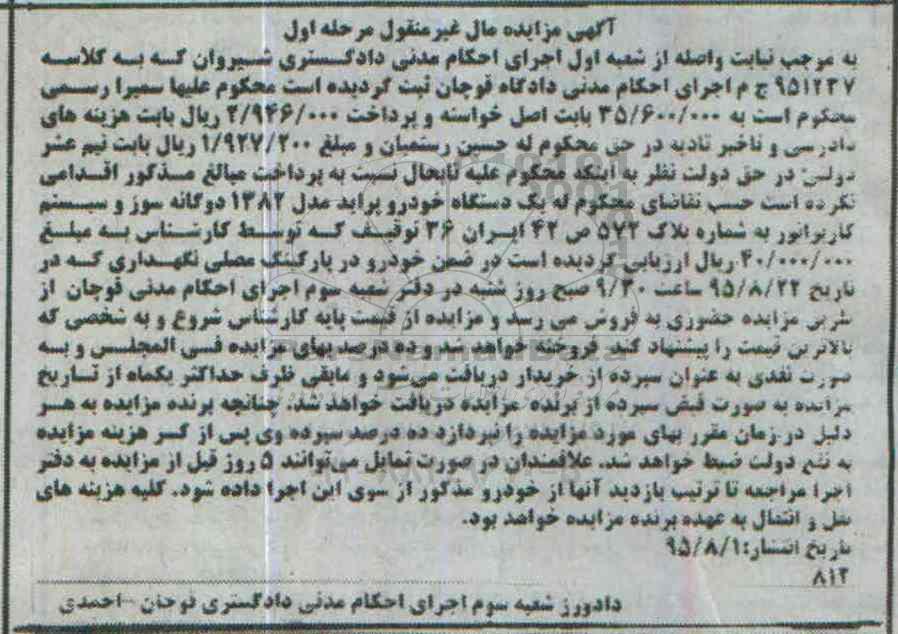 آگهی مزایده مال غیرمنقول مرحله اول
به موجب نیابت واصله از شعبه اول اجرای احکام مدنی دادگستری شیروان که به کلاسه
۹۵۱۲۳۷ ج م اجرای احکام مدنی دادگاه قوچان ثبت گردیده است محکوم علیها سمیرا رستمی
محکوم است به ۳۵/۶۰۰/۰۰۰ بابت اصل خواسته و پرداخت ۲/۹۴۶/۰۰۰ ریال بابت هزینه های
دادرسی و تاخیر تادیه در حق محکوم له حسین رستمیان و مبلغ ۱/۹۲۷/۲۰۰ ریال بابت نیم عشر
دولتی در حق دولت نظر به اینکه محکوم علیه تابحال نسبت به پرداخت مبالغ مذکور اقدامی
نکرده است حسب تقاضای محکوم له یک دستگاه خودرو پراید مدل ۱۳۸۲ دوگانه سوز و سیستم
کاربراتور به شماره پلاک ۵۷۲ ص ۴۲ ایران ۳۶ توقیف که توسط کارشناس به مبلغ
۴۰/۰۰۰/۰۰۰ ریال ارزیابی گردیده است در ضمن خودرو در پارکینگ مصلی نگهداری که در
تاریخ ۹۵/۸/۲۲ ساعت ۹/۳۰ صبح روز شنبه در دفتر شعبه سوم اجرای احکام مدنی قوچان از
طریق مزایده حضوری به فروش می رسد و مزایده از قیمت پایه کارشناس شروع و به شخصی که
بالاترین قیمت را پیشنهاد کند فروخته خواهد شد و ده درصد بهای مزایده فی المجلس و به
صورت نقدی به عنوان سپرده از خریدار دریافت می‌شود و مابقی ظرف حداکثر یکماه از تاریخ
مزایده به صورت قبض سپرده از برنده مزایده دریافت خواهد شد. چنانچه برنده مزایده به هر
دلیل در زمان مقرر بهای مورد مزایده را نپردازد ده درصد سپرده وی پس از کسر هزینه مزایده
به نفع دولت ضبط خواهد شد. علاقمندان در صورت تمایل می‌توانند ۵ روز قبل از مزایده به دفتر
اجرا مراجعه تا ترتیب بازدید آنها از خودرو مذکور از سوی این اجرا داده شود. کلیه هزینه های
نقل و انتقال به عهده برنده مزایده خواهد بود.
تاریخ انتشار: ۹۵/۸/۱
۸۱۲
دادورز شعبه سوم اجرای احکام مدنی دادگستری قوچان - احمدی